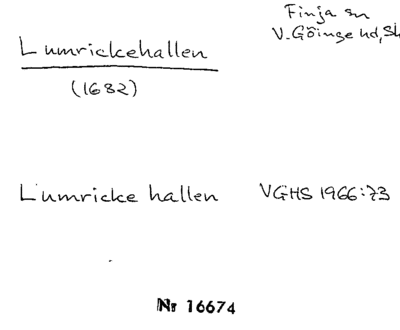 Finja sn
V. Göinge hd, Sk
Lumrickehallen
(1682)
Lumricke hallen VGHS 1966:73
Nr 16674